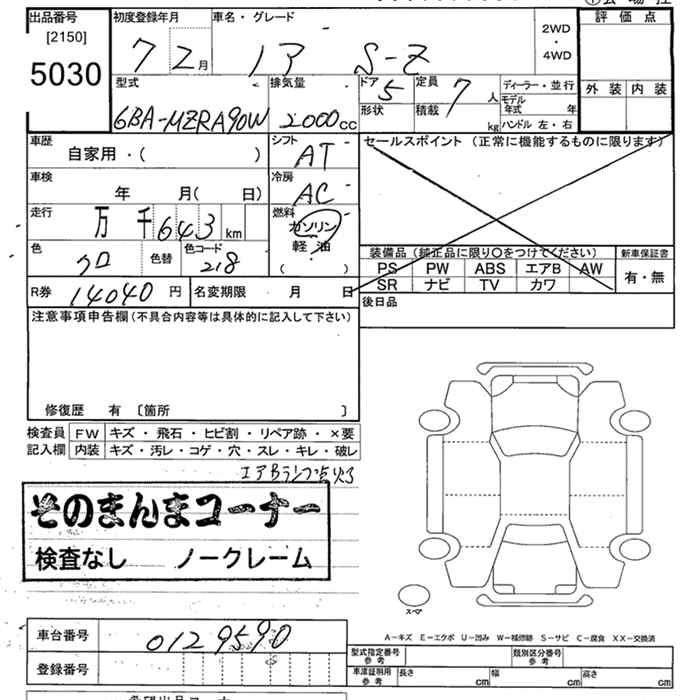 出品番号 [2150] 5030
初度登録年月 7 2月
車名・グレード S-Z
2WD・4WD
評価点
外装 内装
型式 6BA-MZRA90W
排気量 2000cc
ドア 5
形状
定員 7人
積載 kg
ディーラー・並行
モデル年式 年
ハンドル 左・右
車歴 自家用・( )
シフト AT
セールスポイント(正常に機能するものに限ります)
車検 年 月( 日)
冷房 AC
走行 万千643km
燃料 ガソリン 軽油 ( )
色 クロ 色替 色コード 218
装備品(純正品に限り○をつけてください)
新車保証書
PS PW ABS エアB AW
SR ナビ TV カワ
有・無
R券 14040円
名変期限 月 日
後日品
注意事項申告欄(不具合内容等は具体的に記入して下さい)
修復歴 有 〔箇所 〕
検査員記入欄
FW キズ・飛石・ヒビ割・リペア跡・×要
内装 キズ・汚レ・コゲ・穴・スレ・キレ・破レ
エアBランプ点灯
そのまんまコーナー
検査なし ノークレーム
スペア
A－キズ E－エクボ U－凹み W－補修跡 S－サビ C－腐食 XX－交換済
車台番号 0129590
登録番号
型式指定番号 参考
類別区分番号 参考
車庫証明用 参考 長さ cm 幅 cm 高さ cm